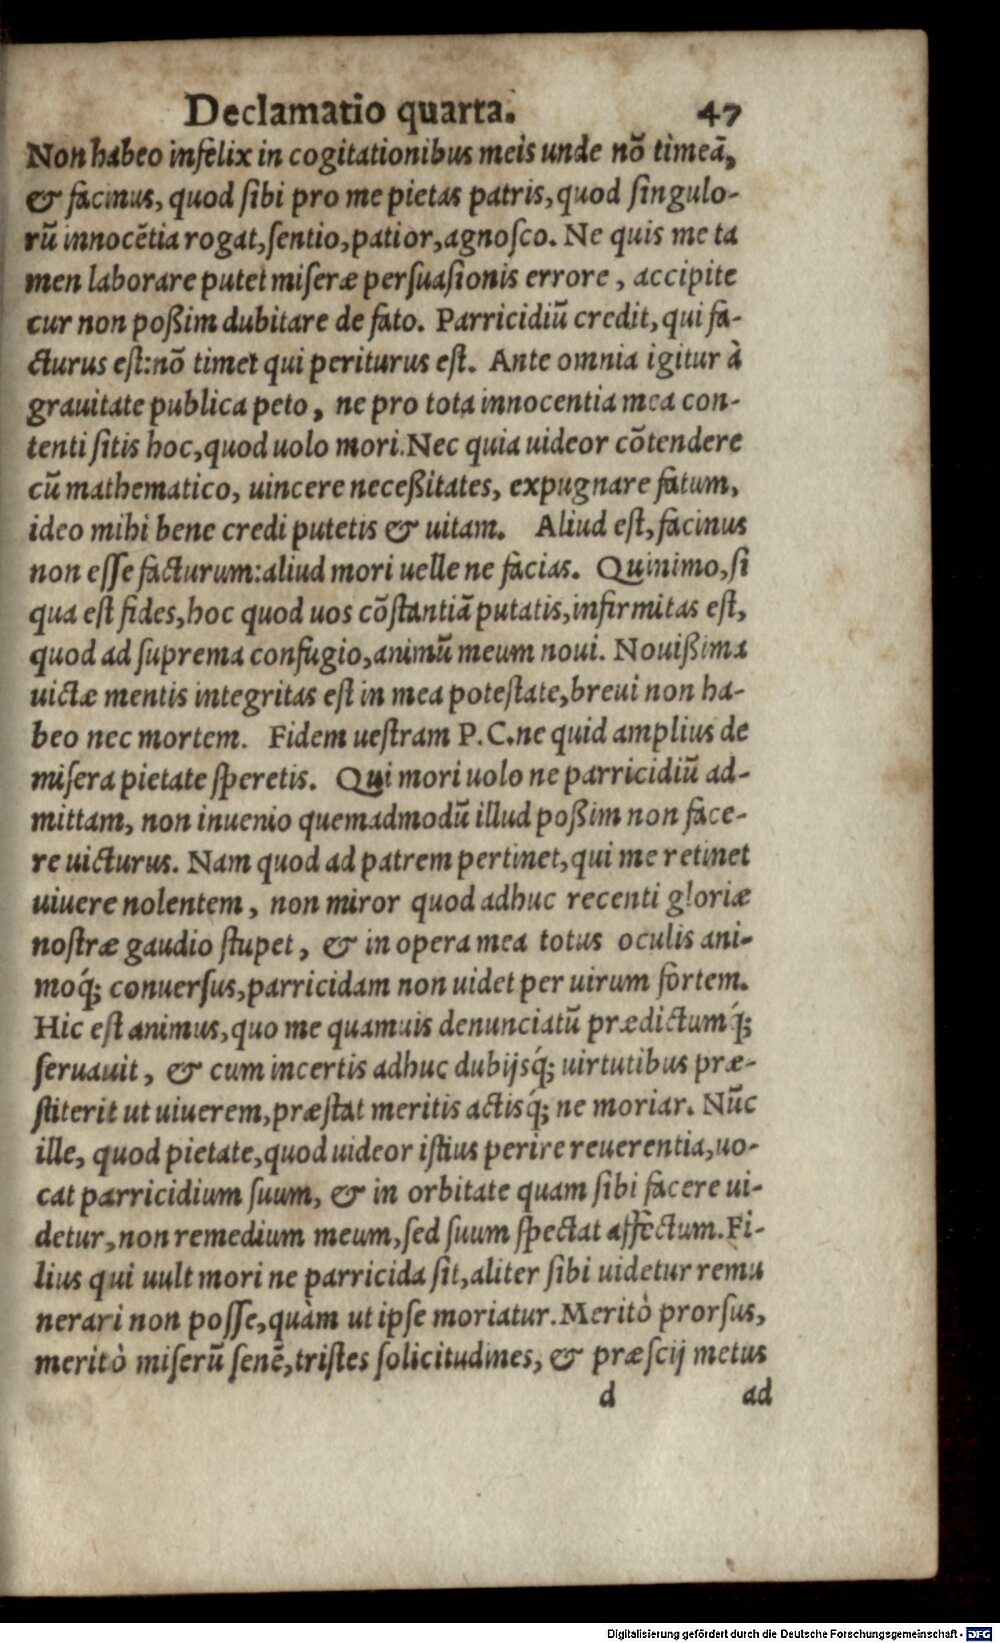 Declamatio quarta. 47
Non habeo infelix in cogitationibus meis unde nõ timeã,
& facinus, quod sibi pro me pietas patris, quod singulo-
rũ innocẽtia rogat, sentio, patior, agnosco. Ne quis me ta
men laborare putet miseræ persuasionis errore, accipite
cur non poßim dubitare de fato. Parricidiũ credit, qui fa-
cturus est: nõ timet qui periturus est. Ante omnia igitur à
grauitate publica peto, ne pro tota innocentia mea con-
tenti sitis hoc, quod uolo mori. Nec quia uideor cõtendere
cũ mathematico, uincere neceßitates, expugnare fatum,
ideo mihi bene credi putetis & uitam. Aliud est, facinus
non esse facturum: aliud mori uelle ne facias. Quinimo, si
qua est fides, hoc quod uos cõstantiã putatis, infirmitas est,
quod ad suprema confugio, animũ meum noui. Nouißima
uictæ mentis integritas est in mea potestate, breui non ha-
beo nec mortem. Fidem uestram P. C. ne quid amplius de
misera pietate speretis. Qui mori uolo ne parricidiũ ad-
mittam, non inuenio quemadmodũ illud poßim non face-
re uicturus. Nam quod ad patrem pertinet, qui me retinet
uiuere nolentem, non miror quod adhuc recenti gloriæ
nostræ gaudio stupet, & in opera mea totus oculis ani-
moq́; conuersus, parricidam non uidet per uirum fortem.
Hic est animus, quo me quamuis denunciatũ prædictumq́;
seruauit, & cum incertis adhuc dubijsq́; uirtutibus præ-
stiterit ut uiuerem, præstat meritis actisq́; ne moriar. Nũc
ille, quod pietate, quod uideor istius perire reuerentia, uo-
cat parricidium suum, & in orbitate quam sibi facere ui-
detur, non remedium meum, sed suum spectat affectum. Fi-
lius qui uult mori ne parricida sit, aliter sibi uidetur remu
nerari non posse, quàm ut ipse moriatur. Meritò prorsus,
meritò miserũ senẽ, tristes solicitudines, & præscij metus
d ad
Digitalisierung gefördert durch die Deutsche Forschungsgemeinschaft - DFG